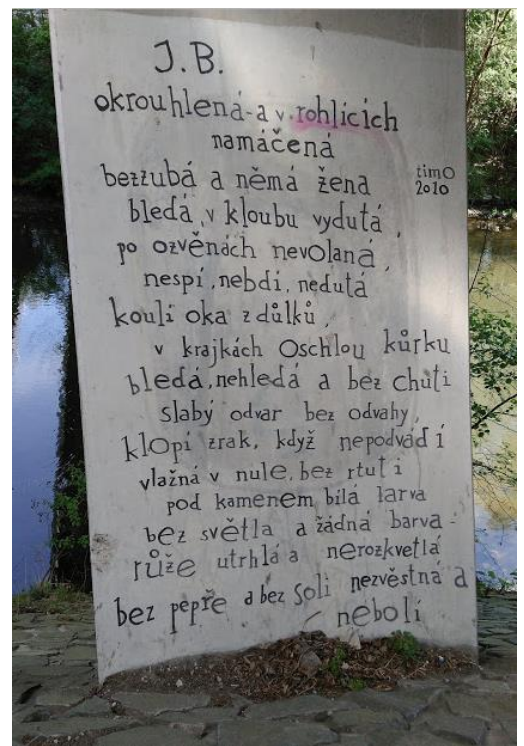 J.B.
okrouhlená-a v rohlících
namáčená
bezzubá a němá žena
timO
2010
bledá, v kloubu vydutá,
po ozvěnách nevolaná,
nespí, nebdí, nedutá
koulí oka z důlků,
v krajkách Oschlou kůrku
bledá, nehledá a bez chuti
slabý odvar bez odvahy,
klopí zrak, když nepodvádí
vlažná v nule, bez rtuti
pod kamenem bílá larva
bez světla a žádná barva-
růže utrhlá a nerozkvetlá
bez pepře a bez soli nezvěstná a
nebolí